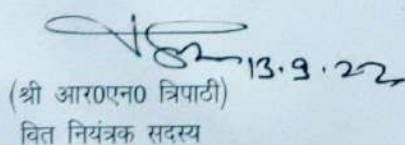 13.9.22
(श्री आर0एन0 त्रिपाठी)
वित नियंत्रक सदस्य